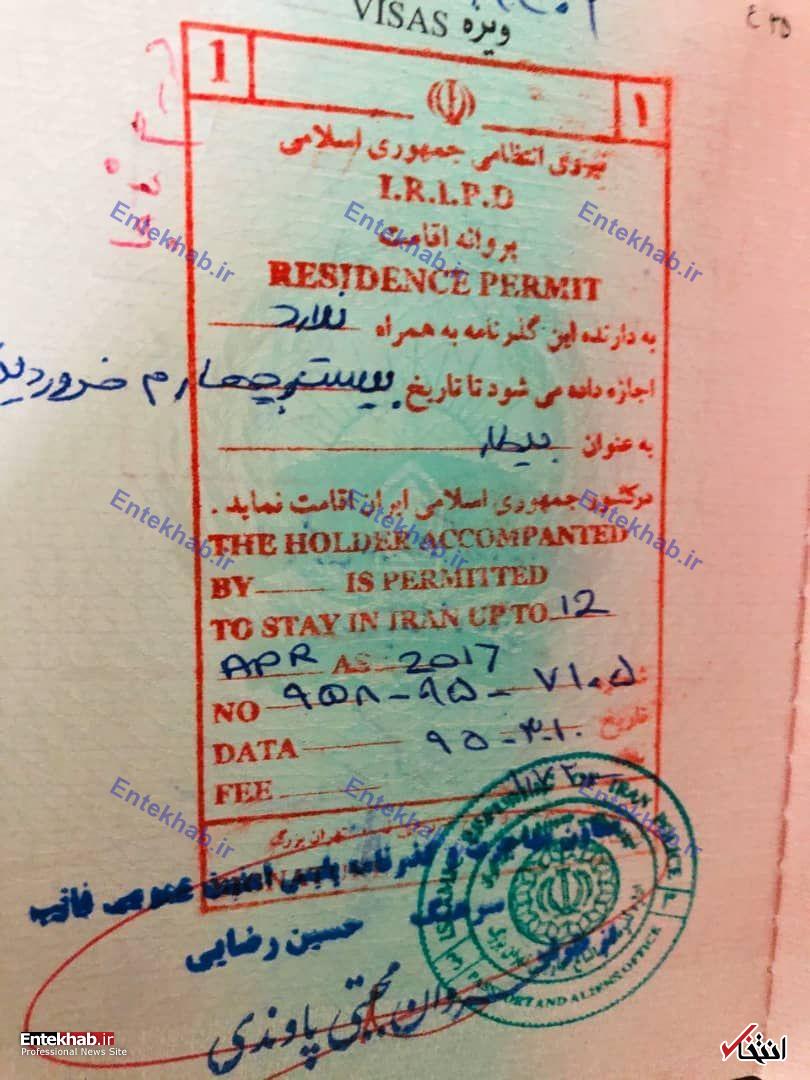 ویزه VISAS
1 ۱
نیروی انتظامی جمهوری اسلامی
I.R.I.P.D
پروانه اقامت
RESIDENCE PERMIT
به دارنده این گذرنامه به همراه ندارد
اجازه داده می شود تا تاریخ بیست چهارم فروردین
به عنوان بیطار
درکشور جمهوری اسلامی ایران اقامت نماید .
THE HOLDER ACCOMPANTED
BY IS PERMITTED
TO STAY IN IRAN UP TO 12
APR AS 2017
NO ۹۵۵۸-۹۵-۷۱۰۵
DATA ۹۵-۳-۱۰ تاریخ
FEE
تهران بزرگ
گذرنامه پلیس امنیت عمومی فاتب
سرهنگ حسین رضایی
مجتبی پاوندی
ISLAMIC REPUBLIC OF IRAN POLICE
PASSPORT AND ALIENS OFFICE
Entekhab.ir
Entekhab.ir
Entekhab.ir
Entekhab.ir
Entekhab.ir
Entekhab.ir
Entekhab.ir
Entekhab.ir
Entekhab.ir
Entekhab.ir
Professional News Site
انتخاب